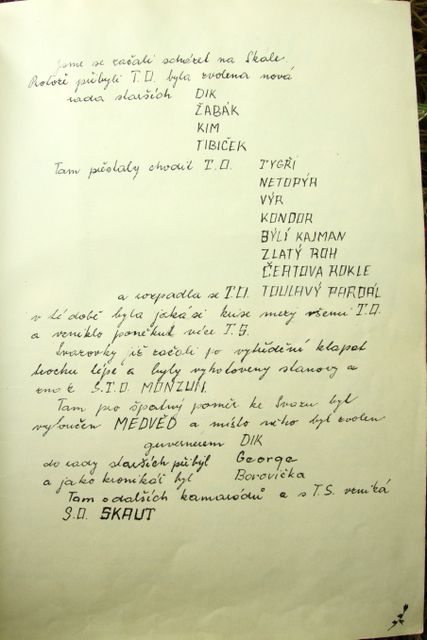 jsme se začali scházet na Skale.
Kotoři přibyli T.O. byla zvolena nová
rada starších DIK
ŽABÁK
KIM
TIBIČEK
Tam přestaly chodit T.O. TYGŘÍ
NETOPÝR
VÝR
KONDOR
BÝLÍ KAJMAN
ZLATÝ ROH
ČERTOVA ROKLE
a rozpadla se T.O. TOULAVÝ PARDÁL
v té době byla jakási krise mezy všemi T.O.
a vzniklo poněkut více T.S.
Svazovky již začali po vytřídění klapat
trochu lépe a byly vyhotoveny stanovy a
znak S.T.O. MONZUN.
Tam pro špatný poměr ke Svazu byl
vyloučen MEDVĚD a místo něho byl zvolen
guvernerem DIK
do rady starších přibyl George
a jako kronikář byl Borovička
Tam z dalších kamarádů a s T.S. vzniká
S.O. SKAUT